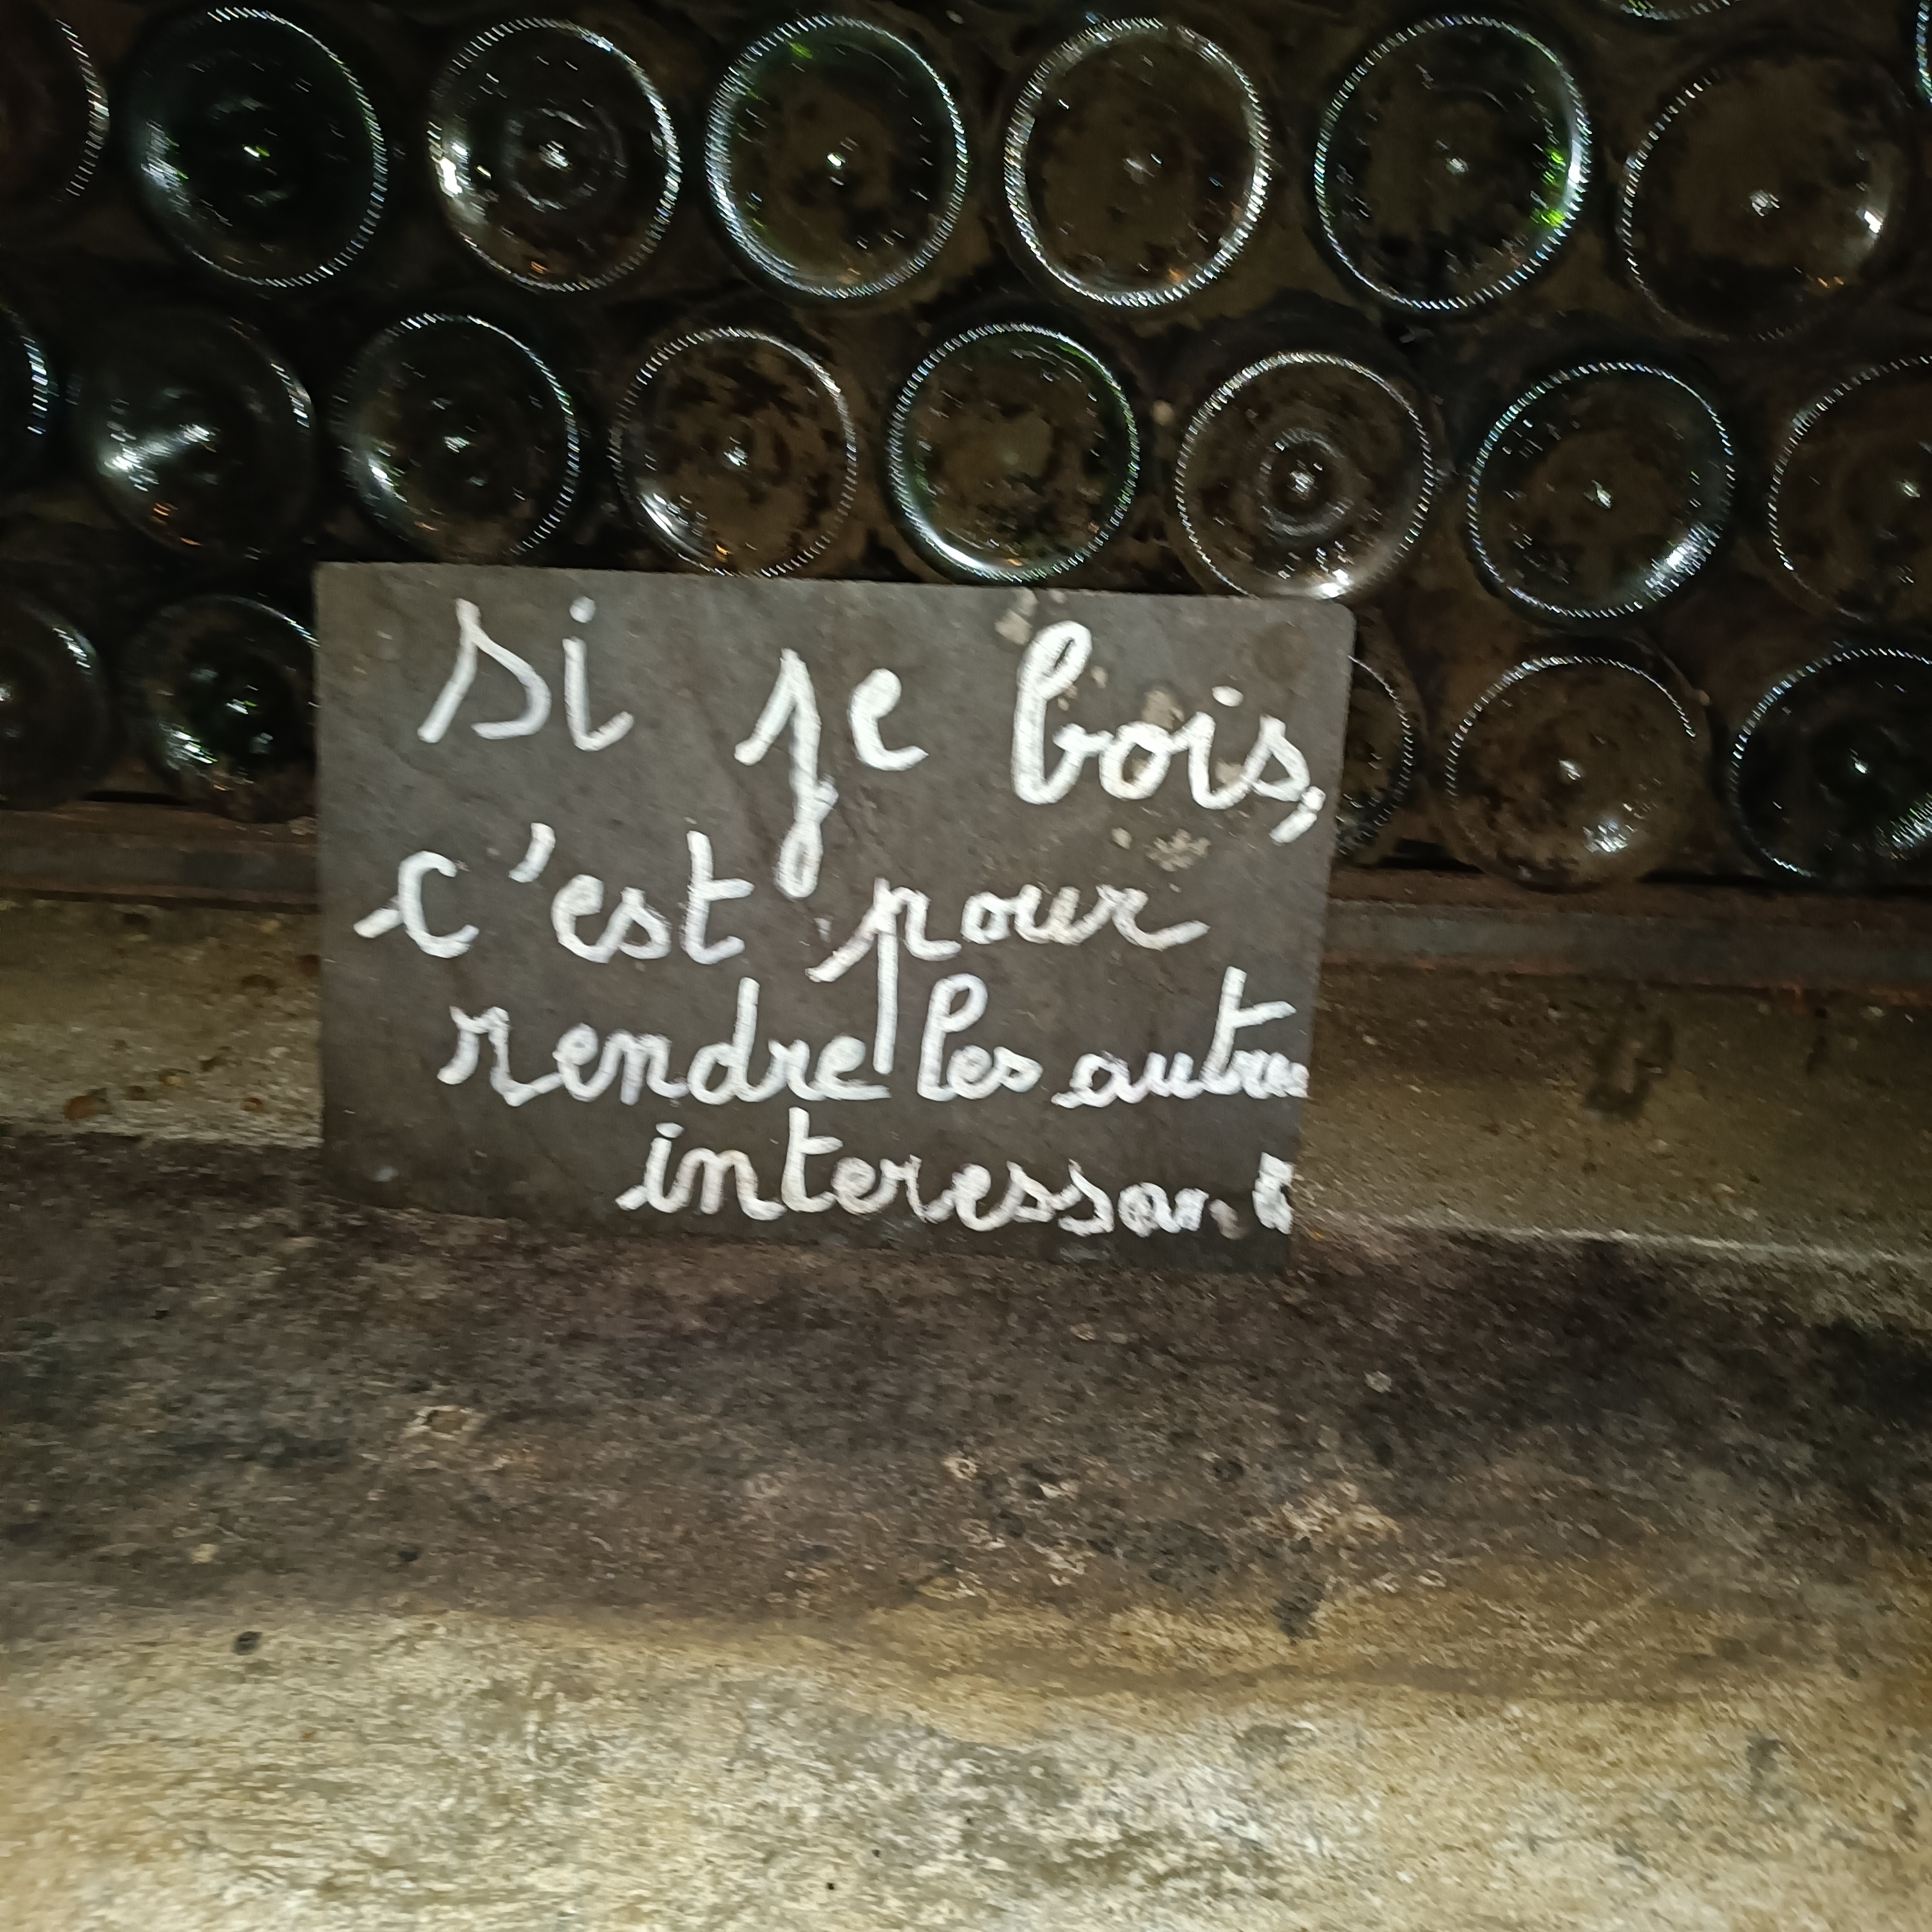 si je bois,
c'est pour
rendre les autres
interessants